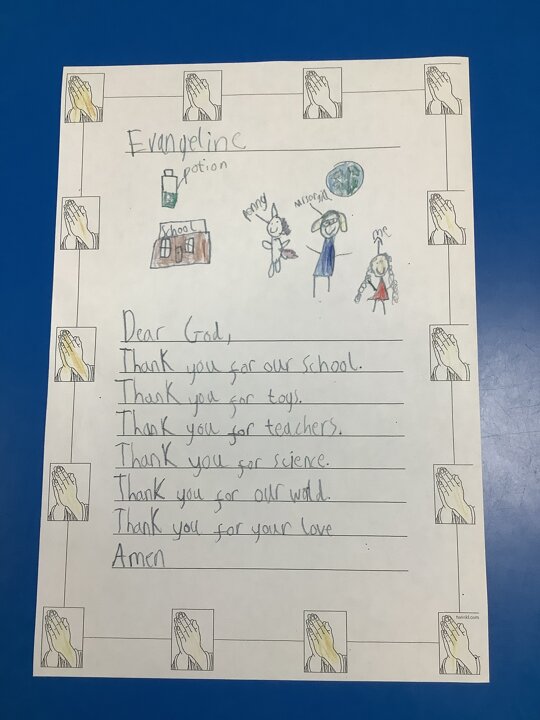 Evangeline
potion
School
penny
me
Dear God,
Thank you for our school.
Thank you for toys.
Thank you for teachers.
Thank you for science.
Thank you for our wold.
Thank you for your love
Amen
twinkl.com